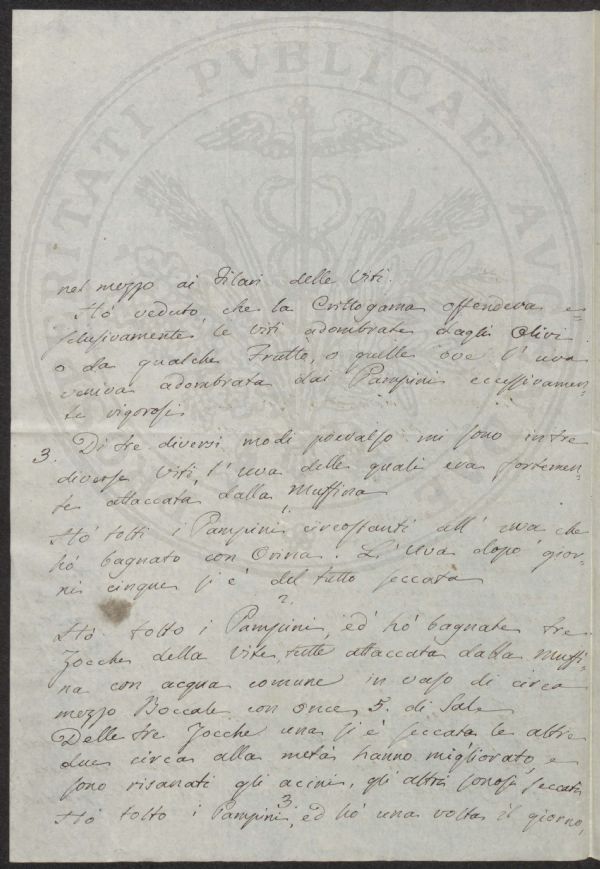 nel mezzo ai Filari delle Viti.
Hò veduto, che la Crittogama offendeva e=
sclusivamente le viti adombrate dagli Olivi
o da qualche Frutto, o quelle ove l'uva
veniva adombrata dai Pampini eccessivamen-
te vigorosi
3. Di tre diversi modi prevalso mi sono in tre
diverse Viti l'uva delle quali era fortemen-
te attaccata dalla Muffina
1.
Hò tolti i Pampini circostanti all'uva che
hò bagnato con Orina. L'Uva dopo gior-
ni cinque si è del tutto seccata
2.
Hò tolto i Pampini, ed hò bagnate tre
Zocche della Vite tutte attaccata dalla Muffi-
na con acqua comune in vaso di circa
mezzo Boccale con once 5. di Sale
Delle tre Zocche una si è seccata le altre
due circa alla metà hanno migliorato, e
sono risanati gli acini, gli altri sonosi seccati
3.
Hò tolto i Pampini, ed hò una volta il giorno,
VERITATI PVBLICAE